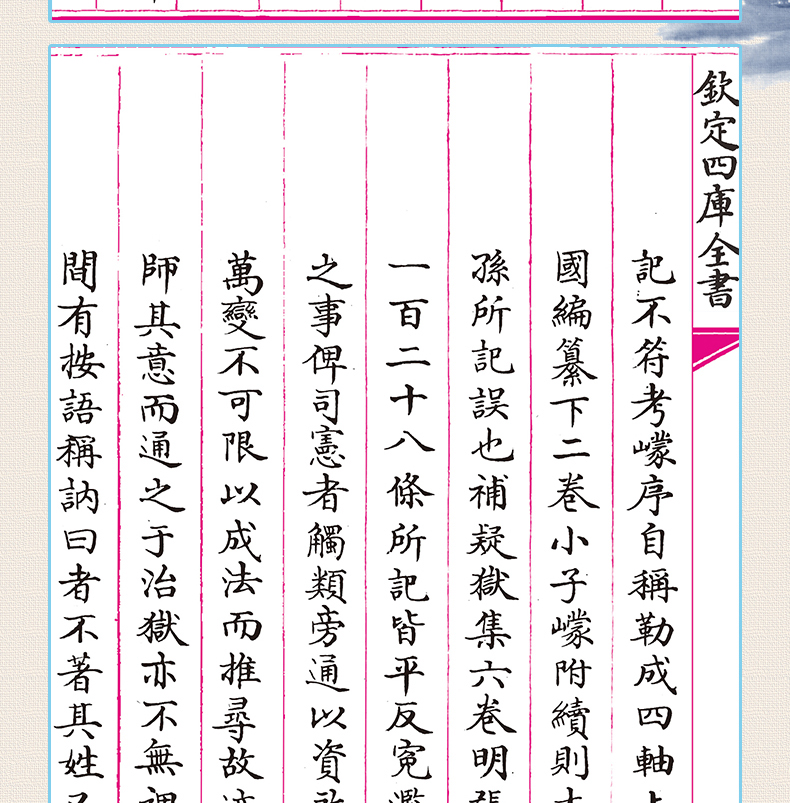 欽定四庫全書
記不符考㠓序自稱勒成四軸上
國編纂下二卷小子㠓附續則
孫所記誤也補疑獄集六卷明張
一百二十八條所記皆平反寃濫
之事俾司憲者觸類旁通以資
萬變不可限以成法而推尋故
師其意而通之于治獄亦不無
間有按語稱訥曰者不著其姓